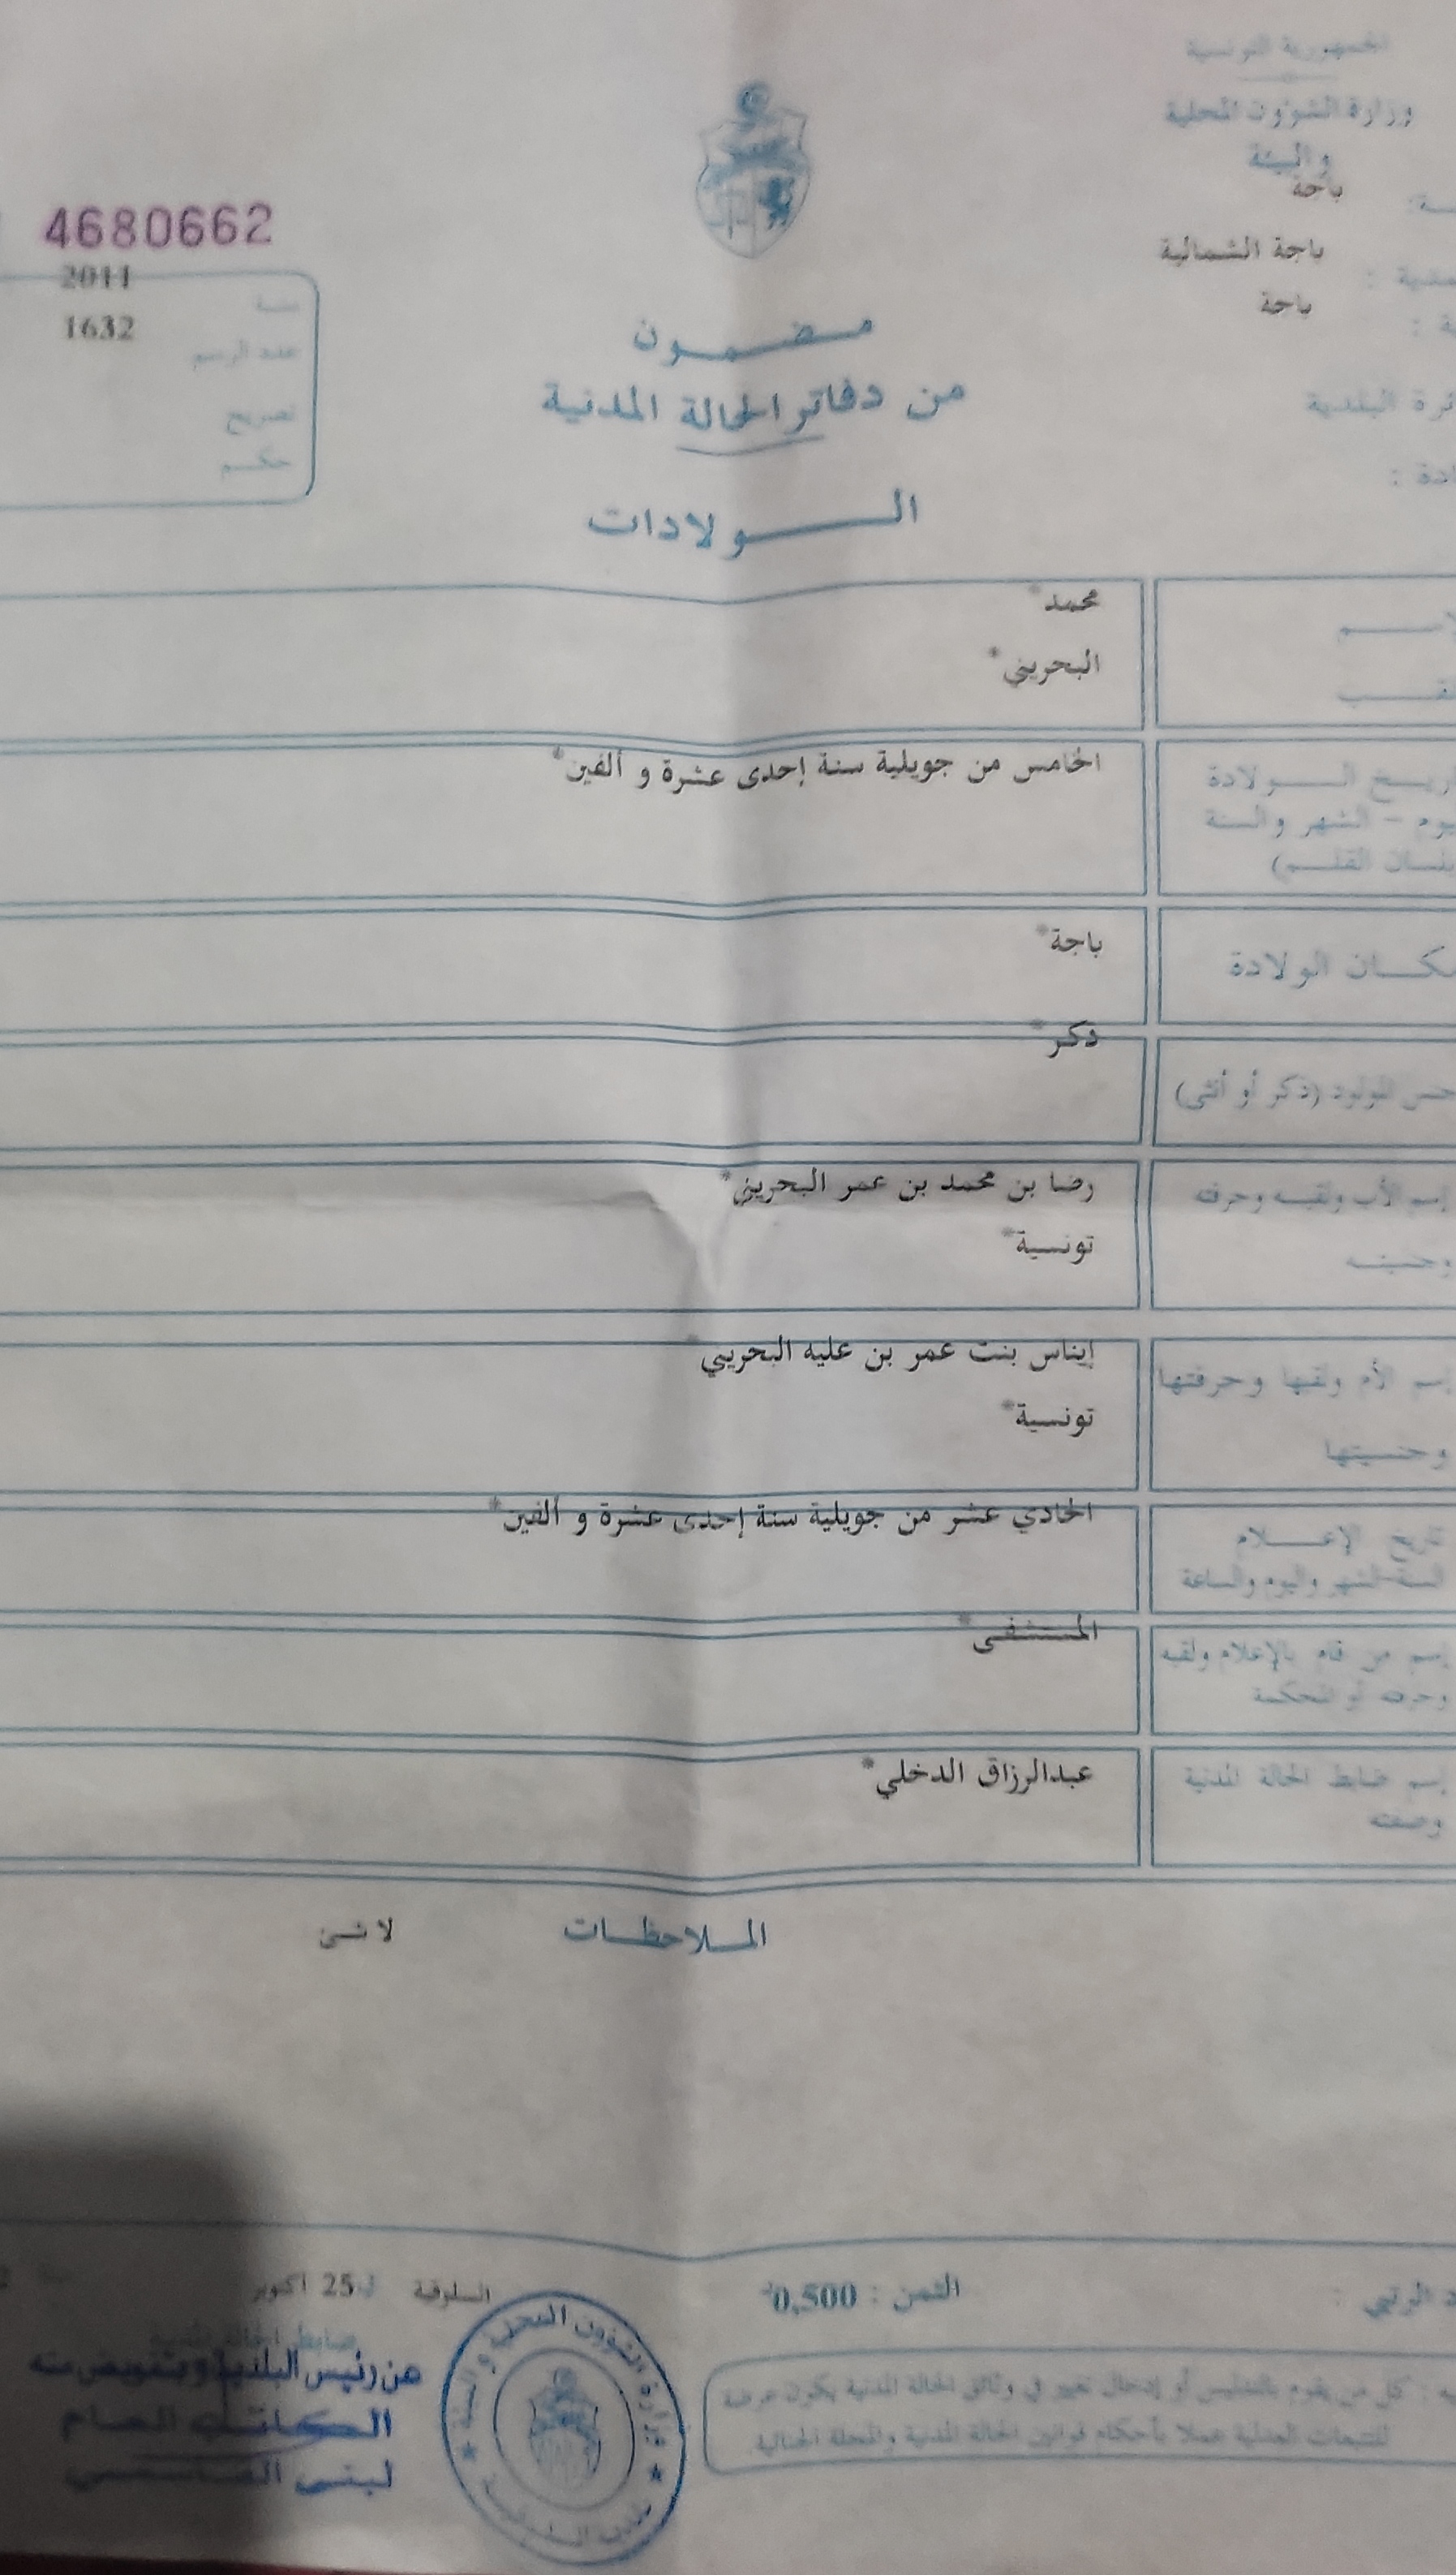 الجمهورية التونسية
وزارة الشؤون المحلية
والبيئة
باجة
4680662
باجة الشمالية
2011
سنة
باجة
1632
عدد الرسم
مضمون
من دفاتر الحالة المدنية
البلدية
تصريح
حكم
الولادات
محمد*
البحريني*
الخامس من جويلية سنة إحدى عشرة و ألفين*
الولادة
– الشهر والسنة
القلم)
باجة*
الولادة
ذكر*
المولود (ذكر أو أنثى)
رضا بن محمد بن عمر البحريني*
إسم الأب ولقبه وحرفته
تونسية*
وجنسيته
إيناس بنت عمر بن عليه البحريني*
إسم الأم ولقبها وحرفتها
تونسية*
وجنسيتها
الحادي عشر من جويلية سنة إحدى عشرة و ألفين*
تاريخ الإعلام
السنة-الشهر واليوم والساعة
المستشفى*
إسم من قام بالإعلام ولقبه
وحرفته أو المحكمة
عبدالرزاق الدخلي*
إسم ضابط الحالة المدنية
وصفته
الملاحظات لا شئ
الثمن : 0,500
السلوقية في 25 أكتوبر
ضابط الحالة المدنية
عن رئيس البلدية وبتفويض منه
الكاتب العام
لبنى
وزارة الشؤون المحلية و البيئة
كل من يقوم بالتدليس أو إدخال تغيير في وثائق الحالة المدنية يكون عرضة
للتتبعات العدلية عملا بأحكام قوانين الحالة المدنية والمجلة الجنائية